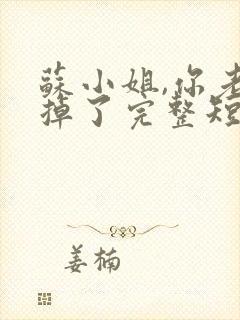 蘇小姐,你老
掉了完整短
姜楠